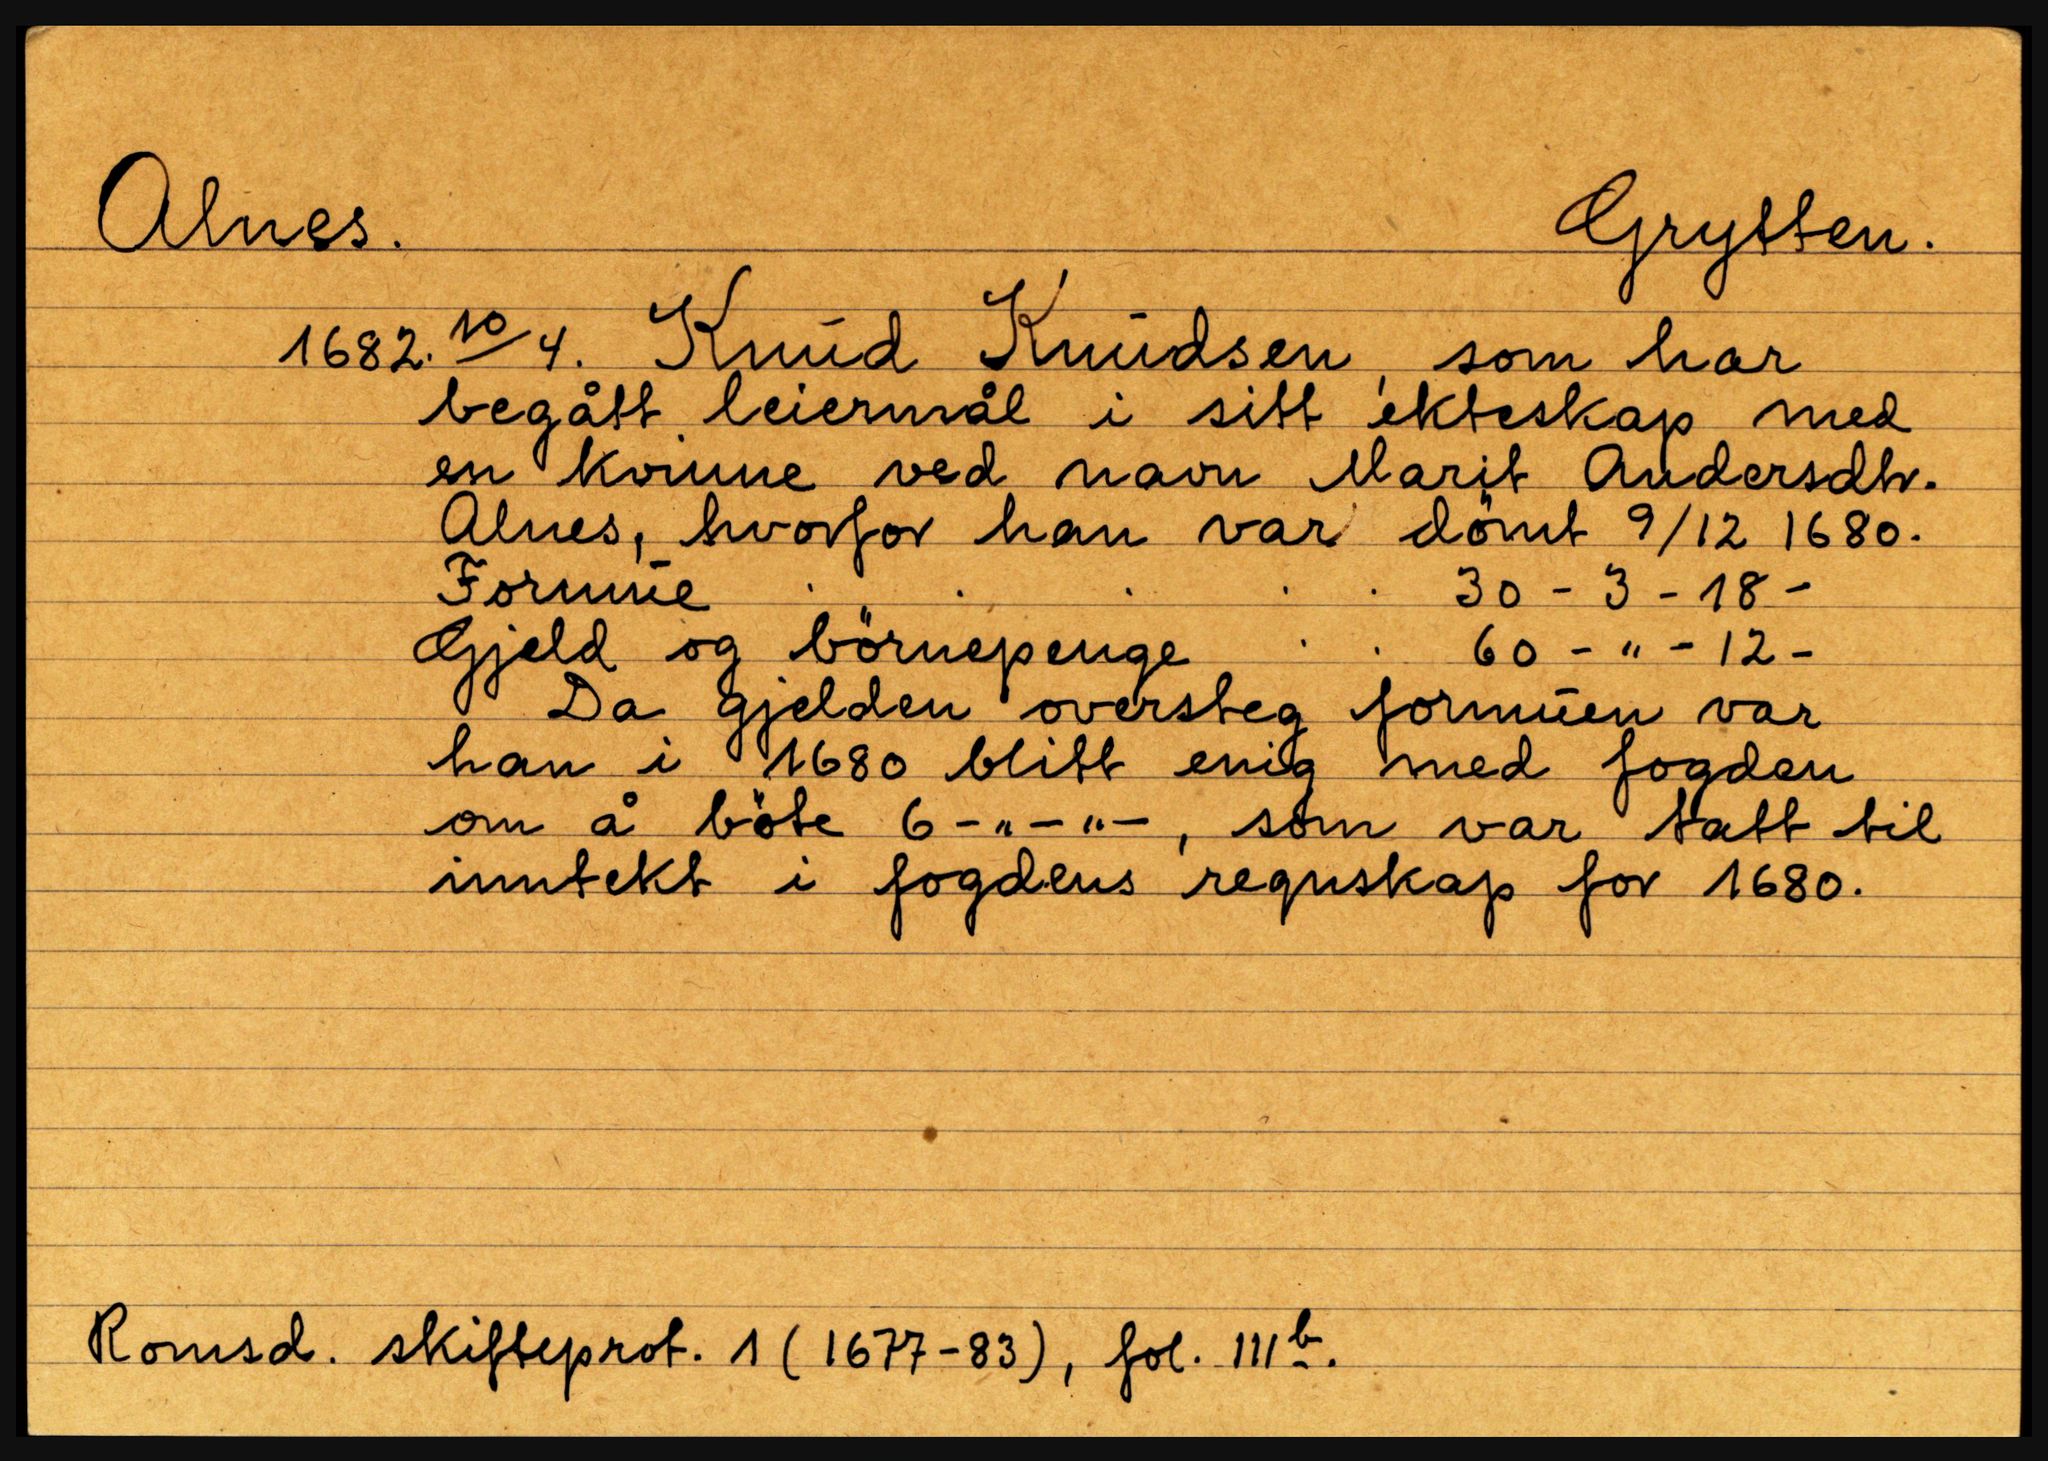 Alnes. Grytten.
1682. 10/4. Knud Knudsen, som har
begått leiermål i sitt ekteskap med
en kvinne ved navn Marit Andersdtr.
Alnes, hvorfor han var dömt 9/12 1680.
Formue . . . . . 30 - 3 - 18 -
Gjeld og börnepenge . . 60 - " - 12 -
Da gjelden oversteg formuen var
han i 1680 blitt enig med fogden
om å böte 6 - " - " -, som var tatt til
inntekt i fogdens regnskap for 1680.
Romsd. skifteprot. 1 (1677-83), fol. 111b.